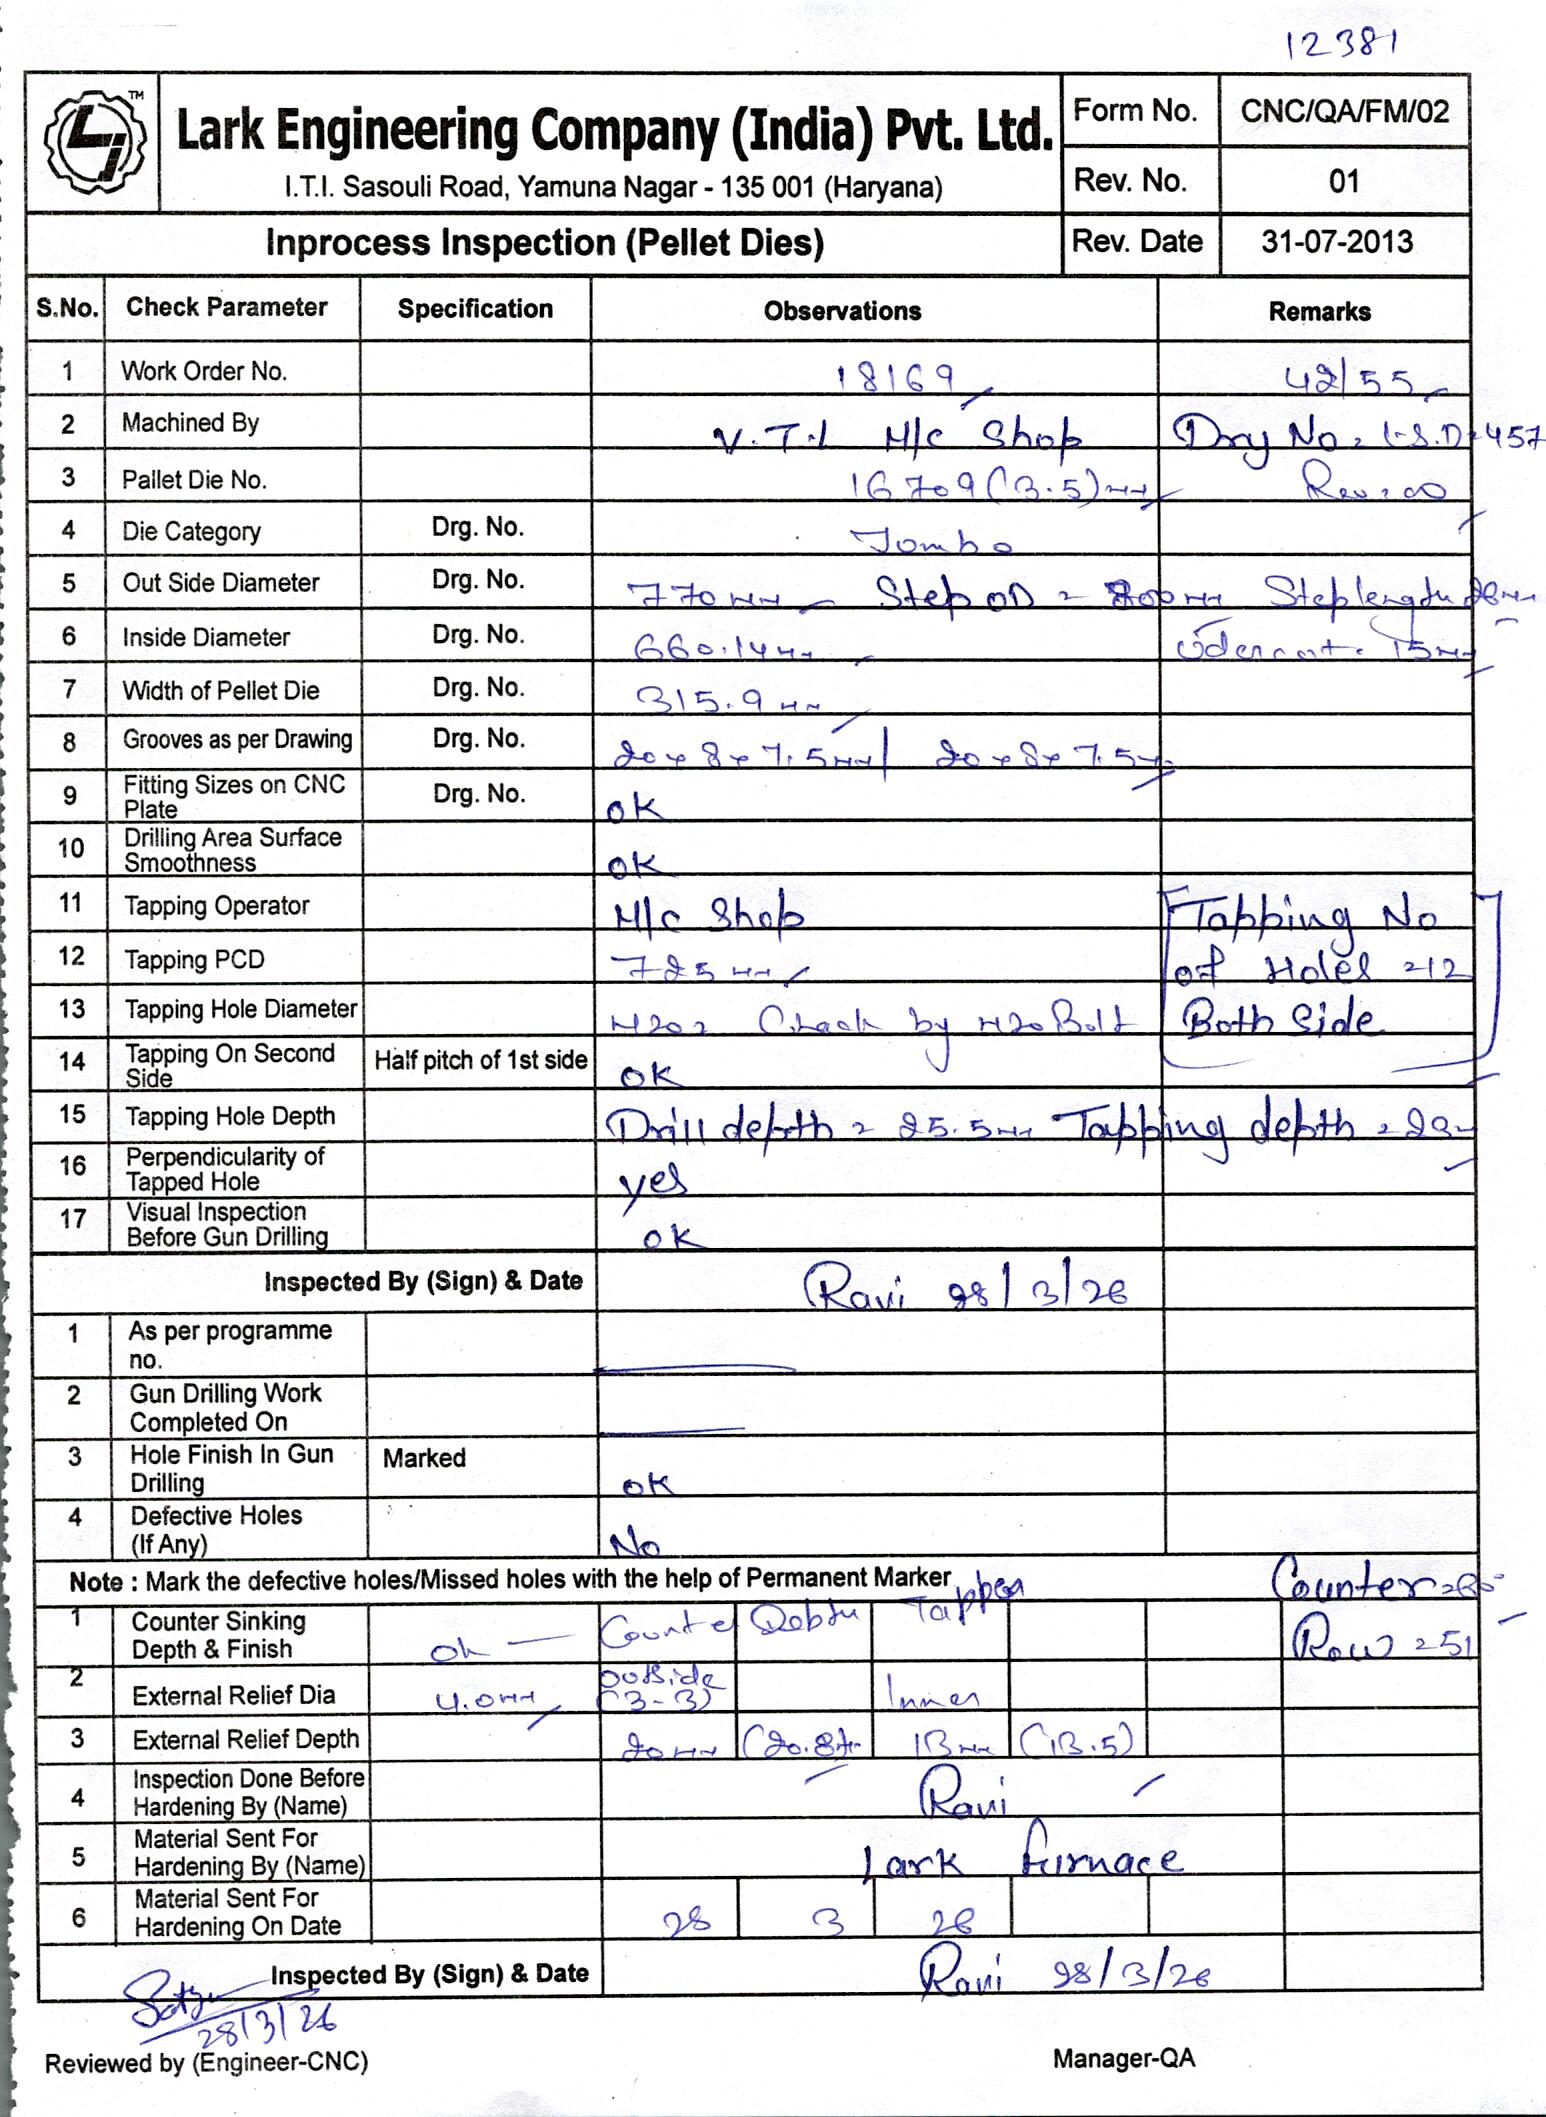 12381
TM
Lark Engineering Company (India) Pvt. Ltd.
I.T.I. Sasouli Road, Yamuna Nagar - 135 001 (Haryana)
Form No. CNC/QA/FM/02
Rev. No. 01
Inprocess Inspection (Pellet Dies) Rev. Date 31-07-2013
S.No. Check Parameter Specification Observations Remarks
1 Work Order No. 18169 42/55
2 Machined By V.T.I M/c Shop Drg No.
3 Pallet Die No. 16709 (3.5)mm Rev:00
4 Die Category Drg. No. Jombo
5 Out Side Diameter Drg. No. 770mm Step OD = 800mm Step length
6 Inside Diameter Drg. No. 660.14mm 15mm
7 Width of Pellet Die Drg. No. 315.9mm
8 Grooves as per Drawing Drg. No. 20x8x7.5mm/ 20x8x7.5m
9 Fitting Sizes on CNC Plate Drg. No. ok
10 Drilling Area Surface Smoothness ok
11 Tapping Operator M/c Shop Tapping No
12 Tapping PCD 725mm of Holes =12
13 Tapping Hole Diameter M20 = Check by M20 Bolt Both Side
14 Tapping On Second Side Half pitch of 1st side ok
15 Tapping Hole Depth Drill depth = 25.5mm Tapping depth
16 Perpendicularity of Tapped Hole yes
17 Visual Inspection Before Gun Drilling ok
Inspected By (Sign) & Date Ravi 28/3/26
1 As per programme no.
2 Gun Drilling Work Completed On
3 Hole Finish In Gun Drilling Marked ok
4 Defective Holes (If Any) No
Note : Mark the defective holes/Missed holes with the help of Permanent Marker Counter
1 Counter Sinking Depth & Finish ok Row = 51
2 External Relief Dia 4.0mm outside (3-3) Inner
3 External Relief Depth 20mm 13mm (13.5)
4 Inspection Done Before Hardening By (Name) Ravi
5 Material Sent For Hardening By (Name) Lark furnace
6 Material Sent For Hardening On Date 28 3 26
Inspected By (Sign) & Date Ravi 28/3/26
28/3/26
Reviewed by (Engineer-CNC) Manager-QA